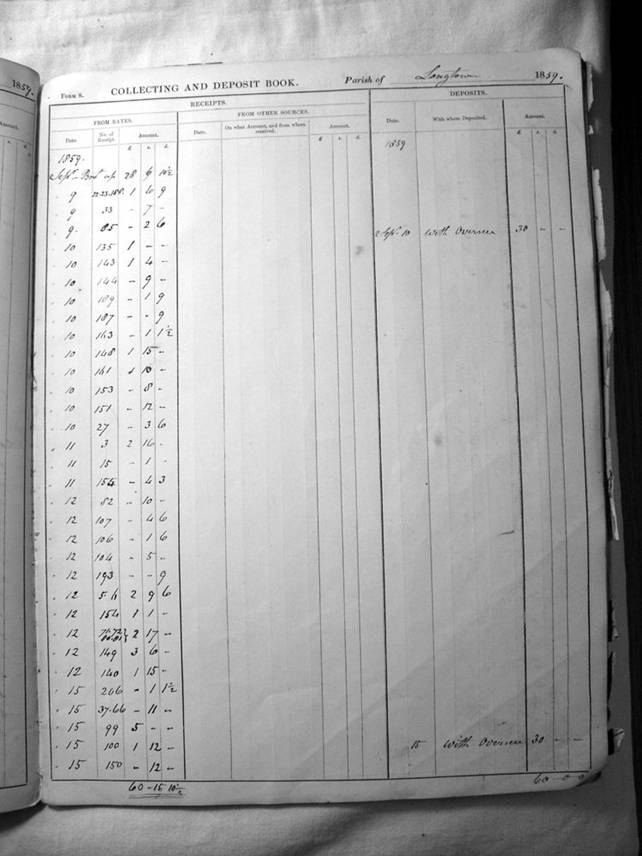 1859.
Amount.
£ s. d.
FORM S. COLLECTING AND DEPOSIT BOOK. Parish of Longtown 1859.
RECEIPTS. DEPOSITS.
FROM RATES. FROM OTHER SOURCES.
Date No. of Receipt. Amount. Date. On what Amount, and from whom received. Amount. Date. With whom Deposited. Amount.
£ s. d. £ s. d. £ s. d.
1859. 1859
Sept. - Brot up 28 6 10½
" 9 22.23.188. 1 6 9
" 9 33 - 7 -
" 9. 85 - 2 6 Sept. 10 With Overseer 30 - -
" 10 135 1 - -
" 10 143 1 4 -
" 10 144 - 9 -
" 10 189 - 1 9
" 10 187 - - 9
" 10 163 - 1 1½
" 10 148 1 15 -
" 10 161 1 10 -
" 10 153 - 8 -
" 10 151 - 12 -
" 10 27 - 3 6
" 11 3 2 16 -
" 11 15 - 1 -
" 11 154 - 4 3
" 12 52 - 10 -
" 12 107 - 4 6
" 12 106 - 1 6
" 12 104 - 5 -
" 12 193 - - 9
" 12 5.6 2 9 6
" 12 154 1 1 -
" 12 71.72 2 17 -
" 12 149 3 6 -
" 12 140 1 15 -
" 15 206 - 1 1½
" 15 37.66 - 11 -
" 15 99 5 - -
" 15 100 1 12 - 15 With Overseer 30 - -
" 15 150 - 12 -
60 - 15 10½ 60 - 0 - 0